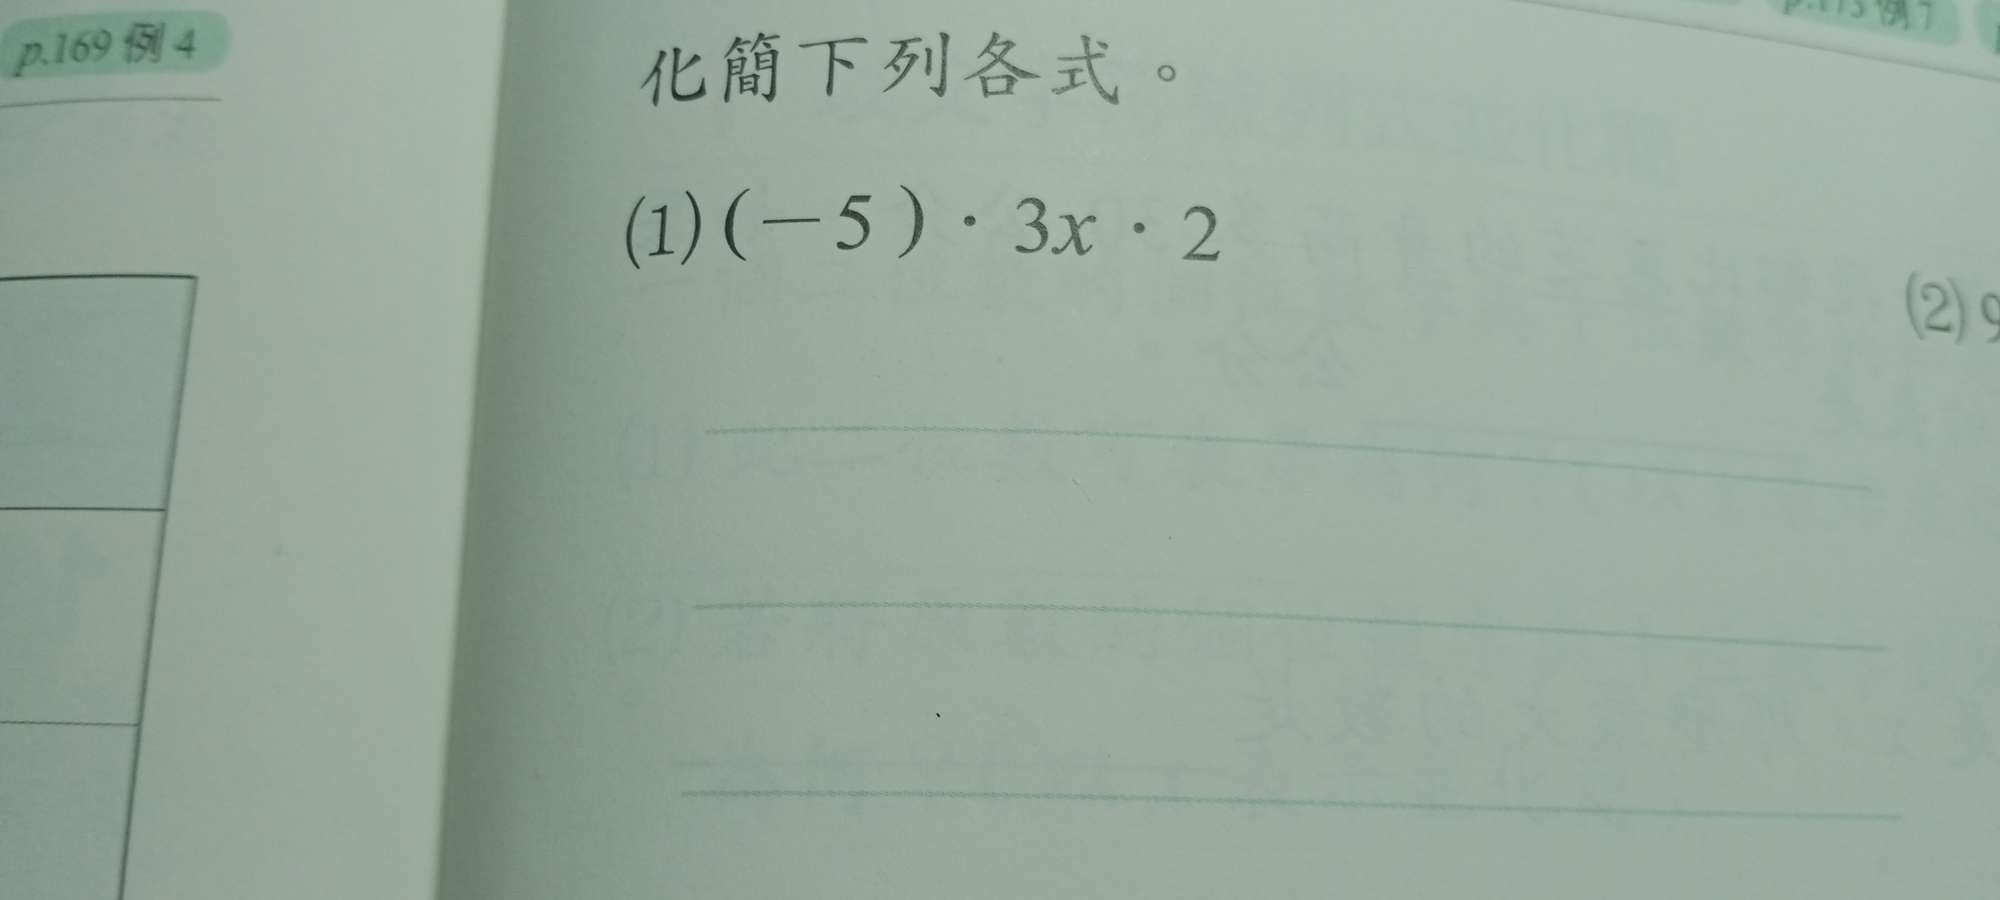 p.169 例 4
化簡下列各式。
(1)(-5)·3x·2
(2) 9